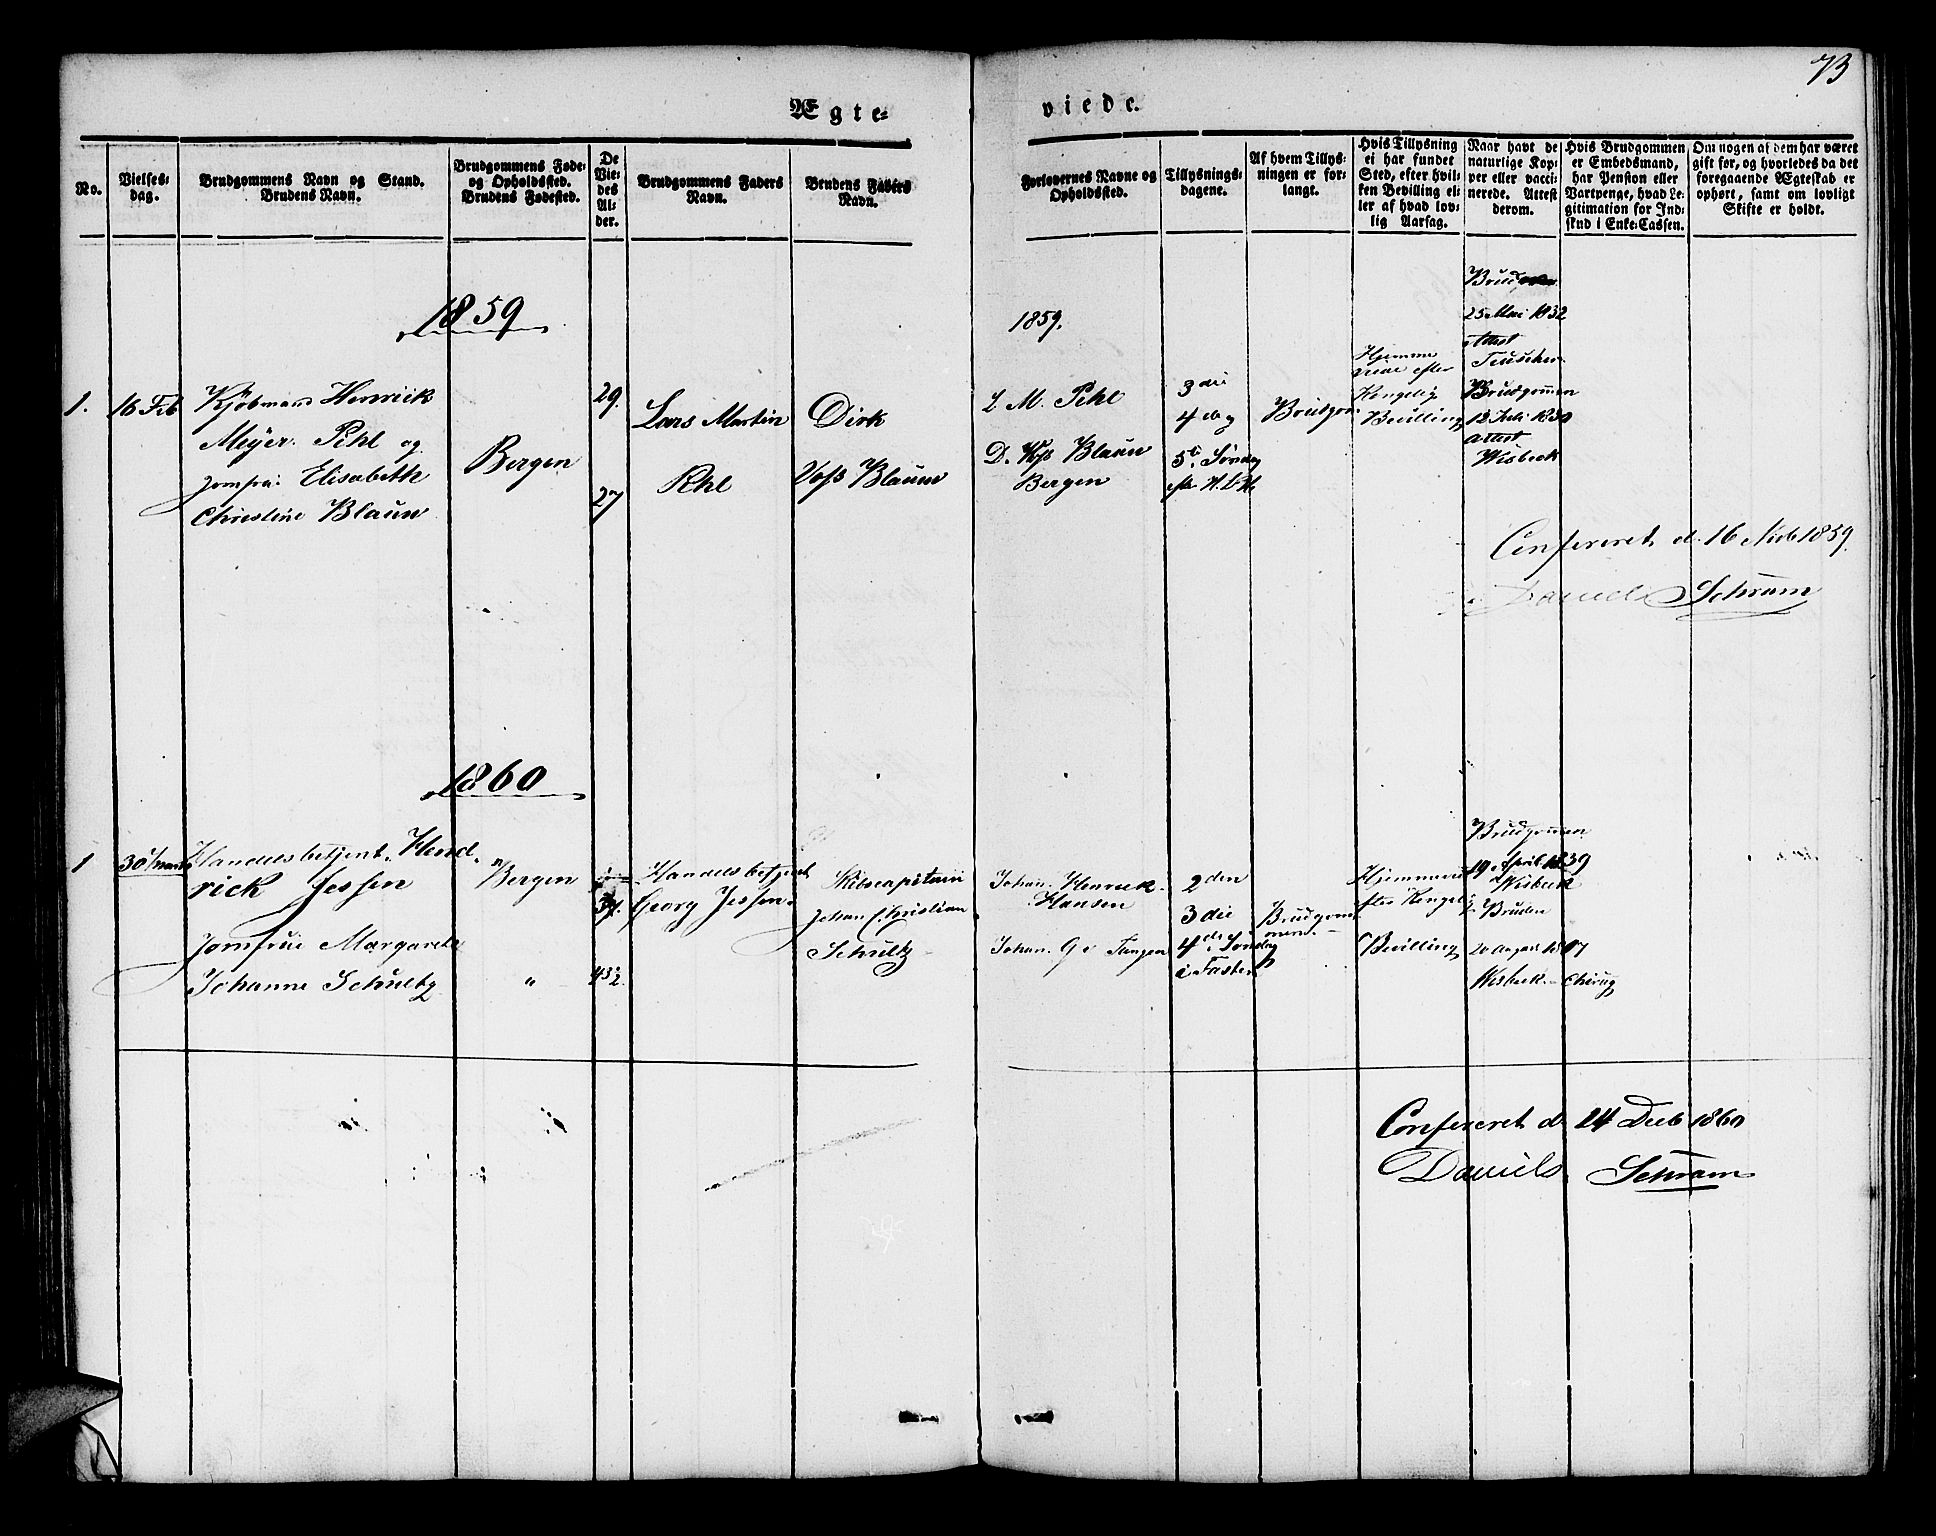 73
Ægte=
viede.
No.
Vielses=
dag.
Brudgommens Navn og Stand.
Brudens Navn.
Brudgommens Føde=
og Opholdssted.
Brudens Fødested.
De
Vie=
des
Al=
der.
Brudgommens Faders
Navn.
Brudens Faders
Navn.
Forlovernes Navne og
Opholdssted.
Tillysnings=
dagene.
Af hvem Tillys=
ningen er for=
langt.
Hvis Tillysning
ei har fundet
Sted, efter hvil=
ken Bevilling el=
ler af hvad lov=
lig Aarsag.
Naar havt de
naturlige Kop=
per eller vacci=
nerede. Attest
derom.
Hvis Brudgommen
er Embedsmand,
har Pension eller
Vartpenge, hvad Le=
gitimation for Ind=
skud i Enke=Cassen.
Om nogen af dem har været
gift før, og hvorledes da det
foregaaende Ægteskab er
ophørt, samt om lovligt
Skifte er holdt.
1859
1.
16 Feb
Kjøbmand Henrick
Meyer Pehl og
Jomfru Elisabeth
Christine Blauw
Bergen
29.
27
Lars Martin
Pehl
Dirk
Vos Blauw
1859.
L. M. Pehl
D. Vos Blauw
Bergen
3die
4de og
5te Søndag
Brudgom
Hjemme
viede efter
Kongelig
Bevilling
25 Mai 1832
Attest
Brudgommen
12 Juli 1830
Attest
Wisbeck
Confereret d. 16 Novb 1859.
Daniels Schram
1860
1
30 Marts
Handelsbetjent Hend=
rick Jessen
Jomfrue Margarete
Johanne Schultz
Bergen
"
37.
43½
Handelsbetjent
Georg Jessen
Skibscapitain
Johan Christian
Schultz
Johan Henrick
Hansen
Johan G v Tangen
2den
3die
4de Søndag
i Fasten
Brudgom=
men
Hjemmevied
efter Kongelig
Bevilling
Brudgommen
19 April 1839
Wisbeck
Bruden
Wisbeck - Chirug
Confereret d 24 Decb 1860
Daniels Schram